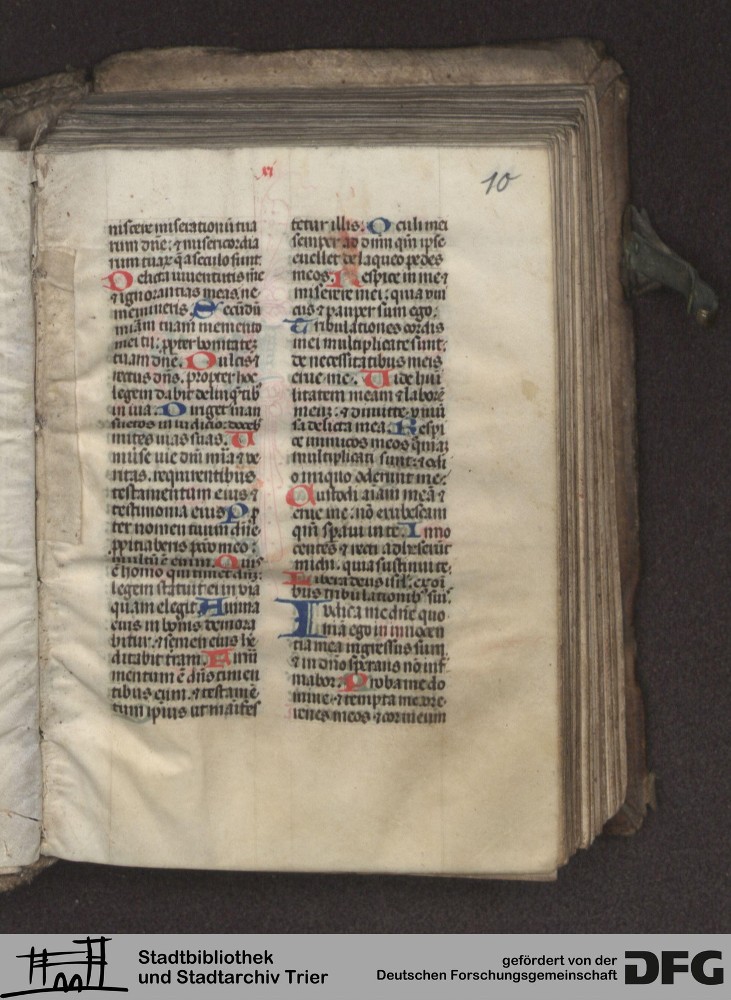 xi
10
niscere miserationū tua
rum dn̄e: ⁊ misericordia
rum tuarꝫ q̄ a seculo sunt.
Delicta iuuentutis me
⁊ ignorantias meas ne
memineris. Secūdū
miām tuam memento
mei tu: ꝓpter bonitatē
tuam dn̄e. Dulcis ⁊
rectus dn̄s. propter hoc
legem dabit delinq̄tibꝫ
in uia. Diriget man
suetos in iudicio: docebit
mites uias suas. U
niu̅se uie dn̄i mīa ⁊ ve
ritas. requirentibus
testamentum eius ⁊
testimonia eius. Pro
ter nomen tuum dn̄e
ꝓpitiaberis pc̄cō meo:
multū ē enim. Quis
ē homo qui timet dn̄m:
legem statuit ei in uia
quam elegit. Anima
eius in bonis demora
bitur: ⁊ semen eius he
ditabit t̄ram. Firmā
mentum ē dn̄s timen
tibus eum. ⁊ testam̄ē
tum ipsius ut maifes
tetur illis: Oculi mei
semper ad dn̄m qm̄ ipse
euellet de laqueo pedes
meos. Respice in me ⁊
miserere mei: quia vni
cus ⁊ pauper sum ego:
Tribulationes cordis
mei multiplicate sunt:
de necessitatibus meis
erue me. Uide humi
litatem meam ⁊ laborē
meū: ⁊ dimitte vniu̅
sa delicta mea. Respi
ce inimicos meos qm̄
multiplicati sunt: ⁊ odi
o iniquo oderunt me:
Custodi aīam meā ⁊
erue me: nō erubescam
qm̄ sꝑaui in te. Inno
centes ⁊ recti adheserūt
michi. quia sustinui te.
Libera deus isrl̄. ex oī
bus tribulationibꝫ suis.
Iudica me dn̄e quo
niā ego in innocen
tia mea ingressus sum
⁊ in dn̄o sperans nō inf
mabor. Proba me do
mine ⁊ tempta me. vre
renes meos ⁊ cor meum
Stadtbibliothek
und Stadtarchiv Trier
gefördert von der
Deutschen Forschungsgemeinschaft
DFG